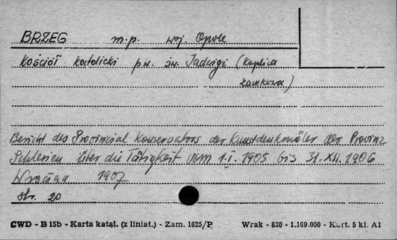 BRZEG m.p. woj. Opole
Kościół katolicki p.w. św. Jadwigi (kaplica
zamkowa)
Bericht des Provinzial Konservators der Kunstdenkmäler der Provinz
Schlesien über die Tätigkeit vom 1.I. 1905 bis 31.XII.1906
1907
str. 20
CWD - B 15b - Karta katal. (z liniat.) - Zam. 1625/P. Wrak - 530 - 1.169.000 - Kart. 5 kl. A1